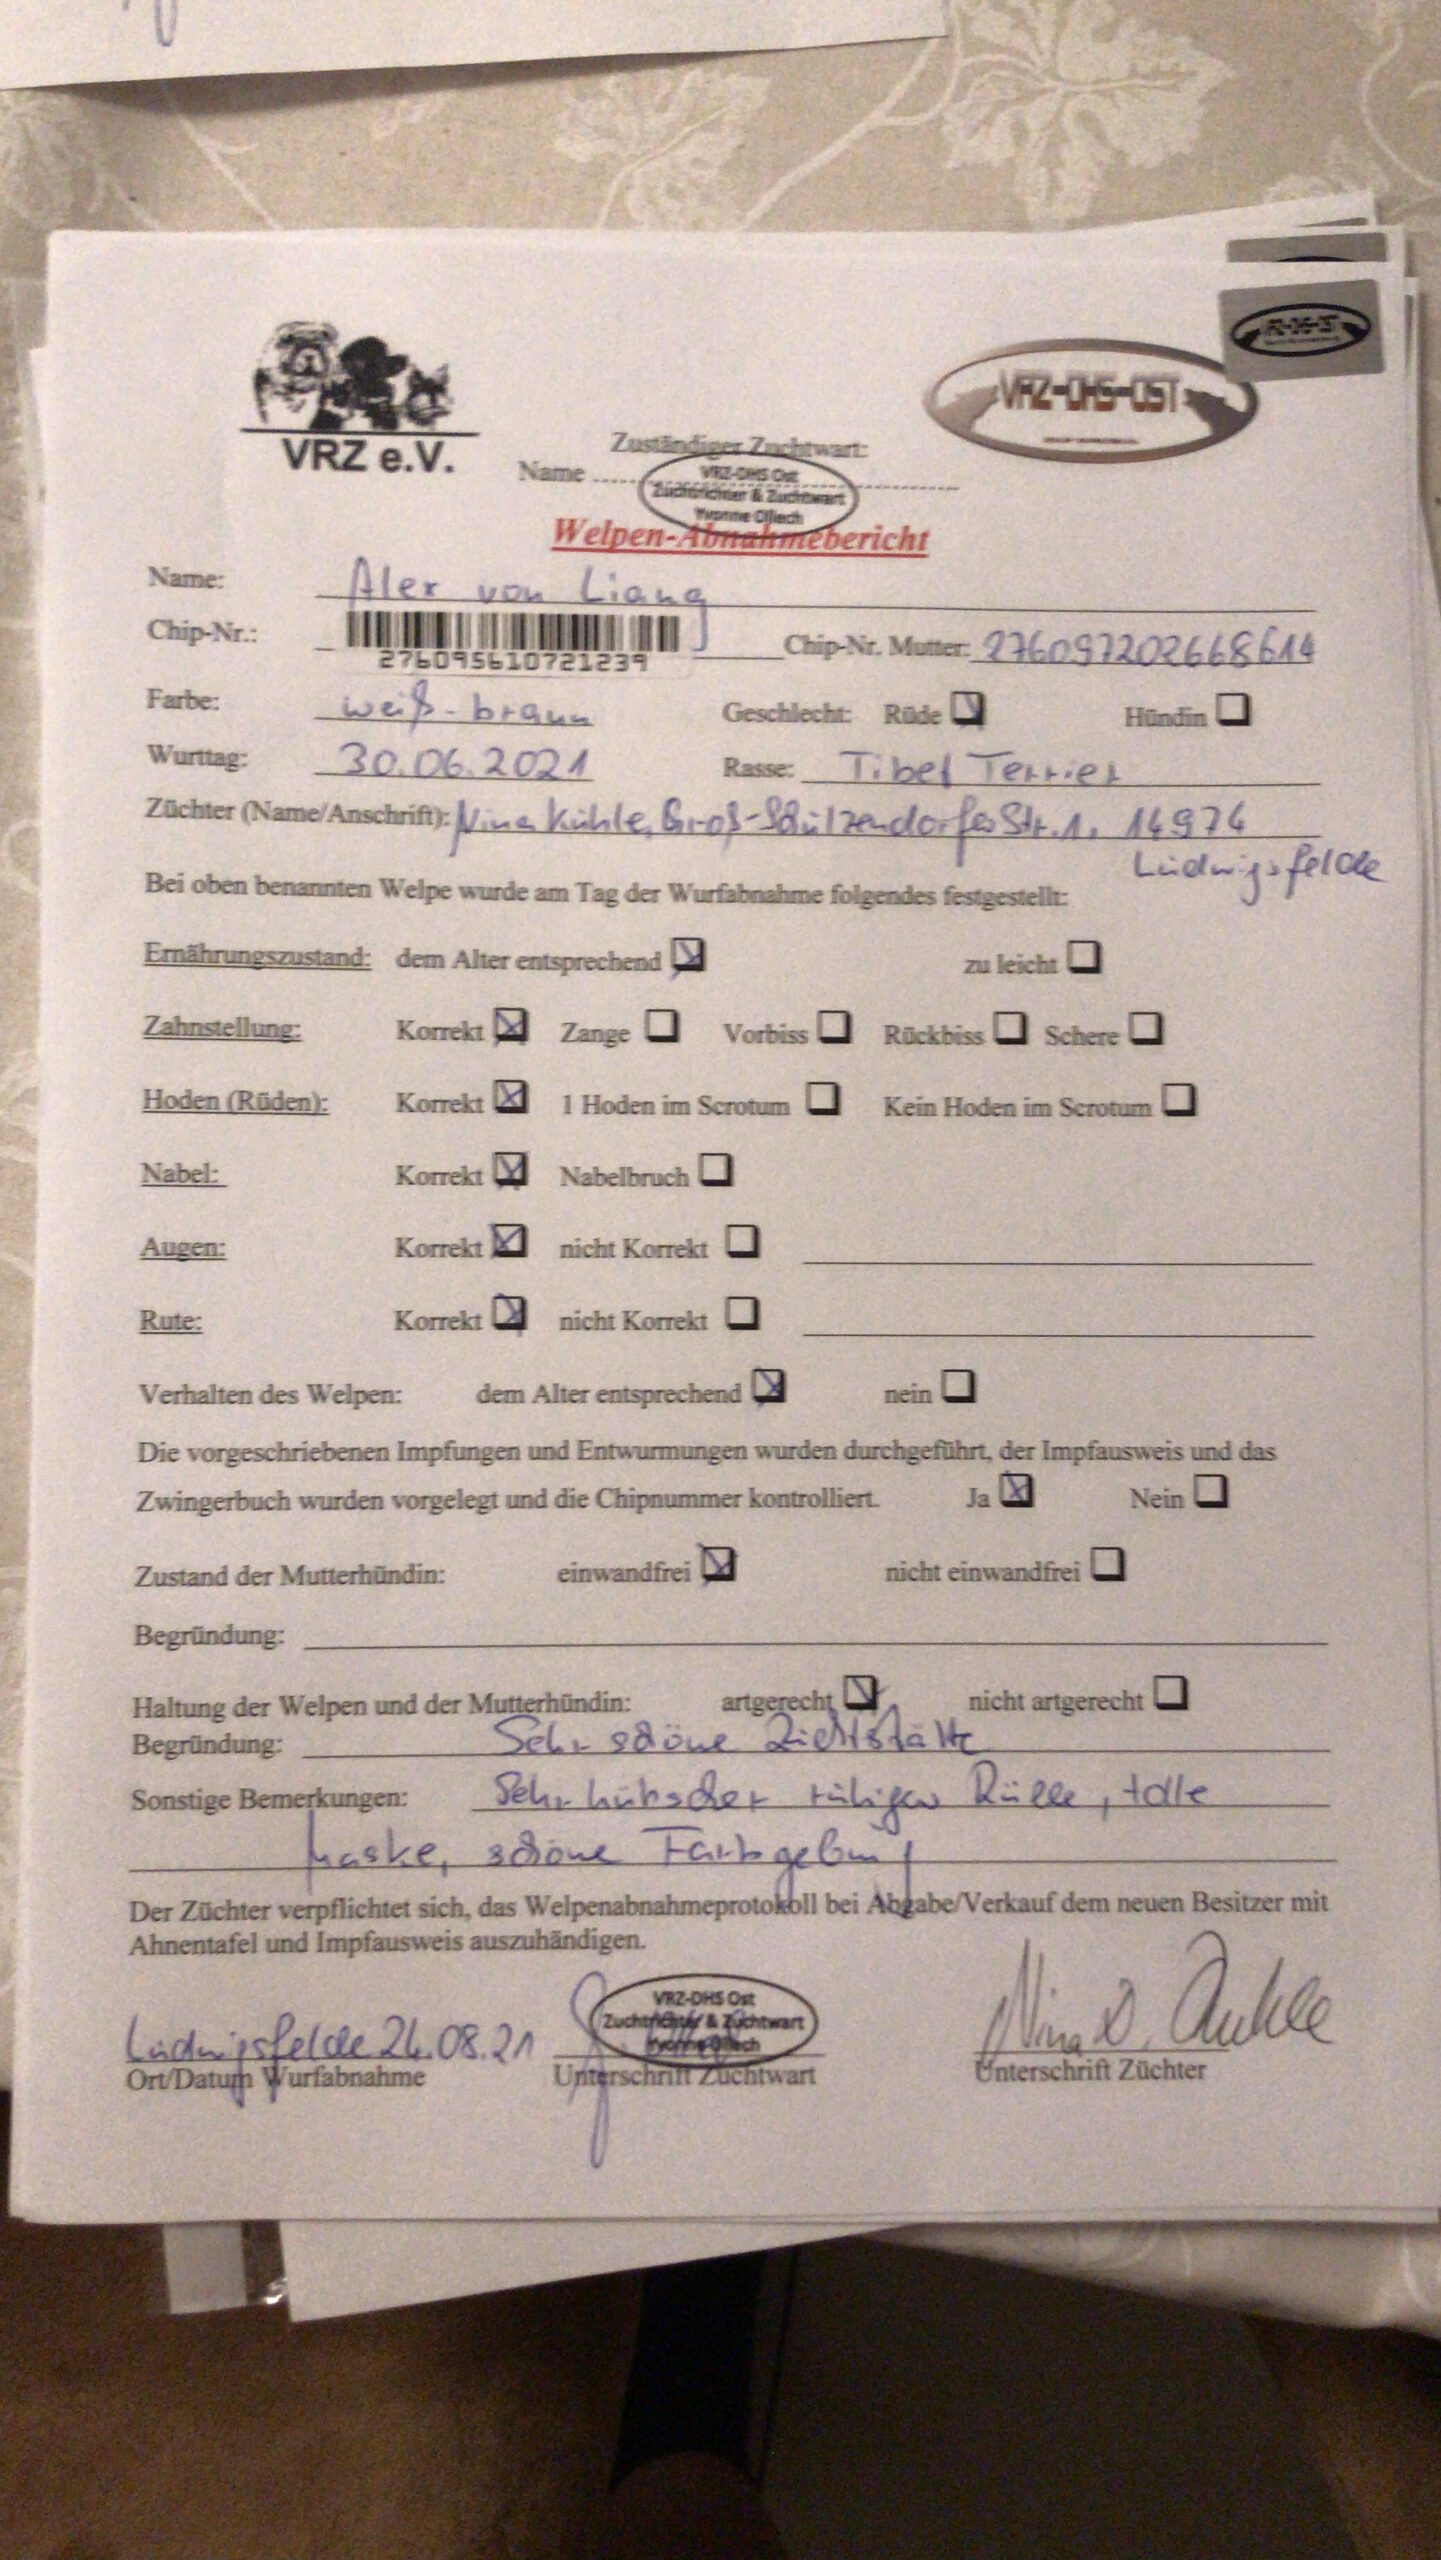 VRZ e.V.
VRZ-DHS-OST
Zuständiger Zuchtwart:
Name
VRZ-DHS Ost
Zuchtrichter & Zuchtwart
Yvonne Ollech
Welpen-Abnahmebericht
Name: Alex von Liang
Chip-Nr.: 276095610721239 Chip-Nr. Mutter: 276097202668614
Farbe: weiß-braun Geschlecht: Rüde Hündin
Wurftag: 30.06.2021 Rasse: Tibet Terrier
Züchter (Name/Anschrift): Nina Kühle, Groß-Schulzendorfer Str. 1, 14974
Ludwigsfelde
Bei oben benannten Welpe wurde am Tag der Wurfabnahme folgendes festgestellt:
Ernährungszustand: dem Alter entsprechend zu leicht
Zahnstellung: Korrekt Zange Vorbiss Rückbiss Schere
Hoden (Rüden): Korrekt 1 Hoden im Scrotum Kein Hoden im Scrotum
Nabel: Korrekt Nabelbruch
Augen: Korrekt nicht Korrekt
Rute: Korrekt nicht Korrekt
Verhalten des Welpen: dem Alter entsprechend nein
Die vorgeschriebenen Impfungen und Entwurmungen wurden durchgeführt, der Impfausweis und das
Zwingerbuch wurden vorgelegt und die Chipnummer kontrolliert. Ja Nein
Zustand der Mutterhündin: einwandfrei nicht einwandfrei
Begründung:
Haltung der Welpen und der Mutterhündin: artgerecht nicht artgerecht
Begründung: Sehr schöne Zuchtstätte
Sonstige Bemerkungen: Sehr hübscher ruhiger Rüde, tolle
Maske, schöne Farbgebung
Der Züchter verpflichtet sich, das Welpenabnahmeprotokoll bei Abgabe/Verkauf dem neuen Besitzer mit
Ahnentafel und Impfausweis auszuhändigen.
VRZ-DHS Ost
Zuchtrichter & Zuchtwart
Yvonne Ollech
Ludwigsfelde 24.08.21
Ort/Datum Wurfabnahme Unterschrift Zuchtwart Unterschrift Züchter